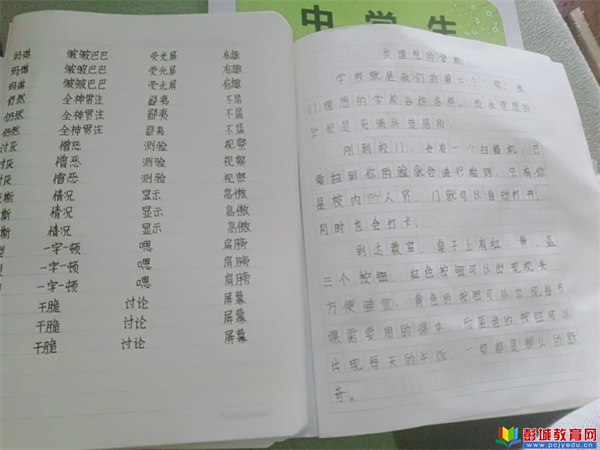 中学生
蚂蝶 皱皱巴巴 荧光屏 有趣
蚂蝶 皱皱巴巴 荧光屏 有趣
皱皱巴巴 荧光屏 有趣
仍然 全神贯注 鄙夷 不屑
仍然 全神贯注 鄙夷 不屑
仍然 全神贯注 鄙夷 不屑
讨厌 憎恶 测验 视察
讨厌 憎恶 测验 视察
讨厌 憎恶 测验 视察
斯 情况 显示 高傲
斯 情况 显示 高傲
斯 情况 显示 高傲
型 一字一顿 嗯 肩膀
一字一顿 嗯 肩膀
一字一顿 嗯 肩膀
干脆 讨论 屏幕
干脆 讨论 屏幕
干脆 讨论 屏幕
理想的学校
学校就是我们的第二个家，
们理想的学校各种各样，我理想的
学校是充满科技感的。
刚到校门，会有一个扫瞄机，只
要扫到你的脸就会进行检测，只有你
是校内人员，门就可以自动打开，
同时也会打卡。
到达教室，桌子上有红、黄、蓝
三个按钮，红色按钮可以出现枕头，
方便睡觉，黄色的按钮可以出现每节
课需要用的课本，而蓝色的按钮可以
出现每天的午饭，一切都是那么的神
奇。
彭城教育网
www.pcjyedu.cn